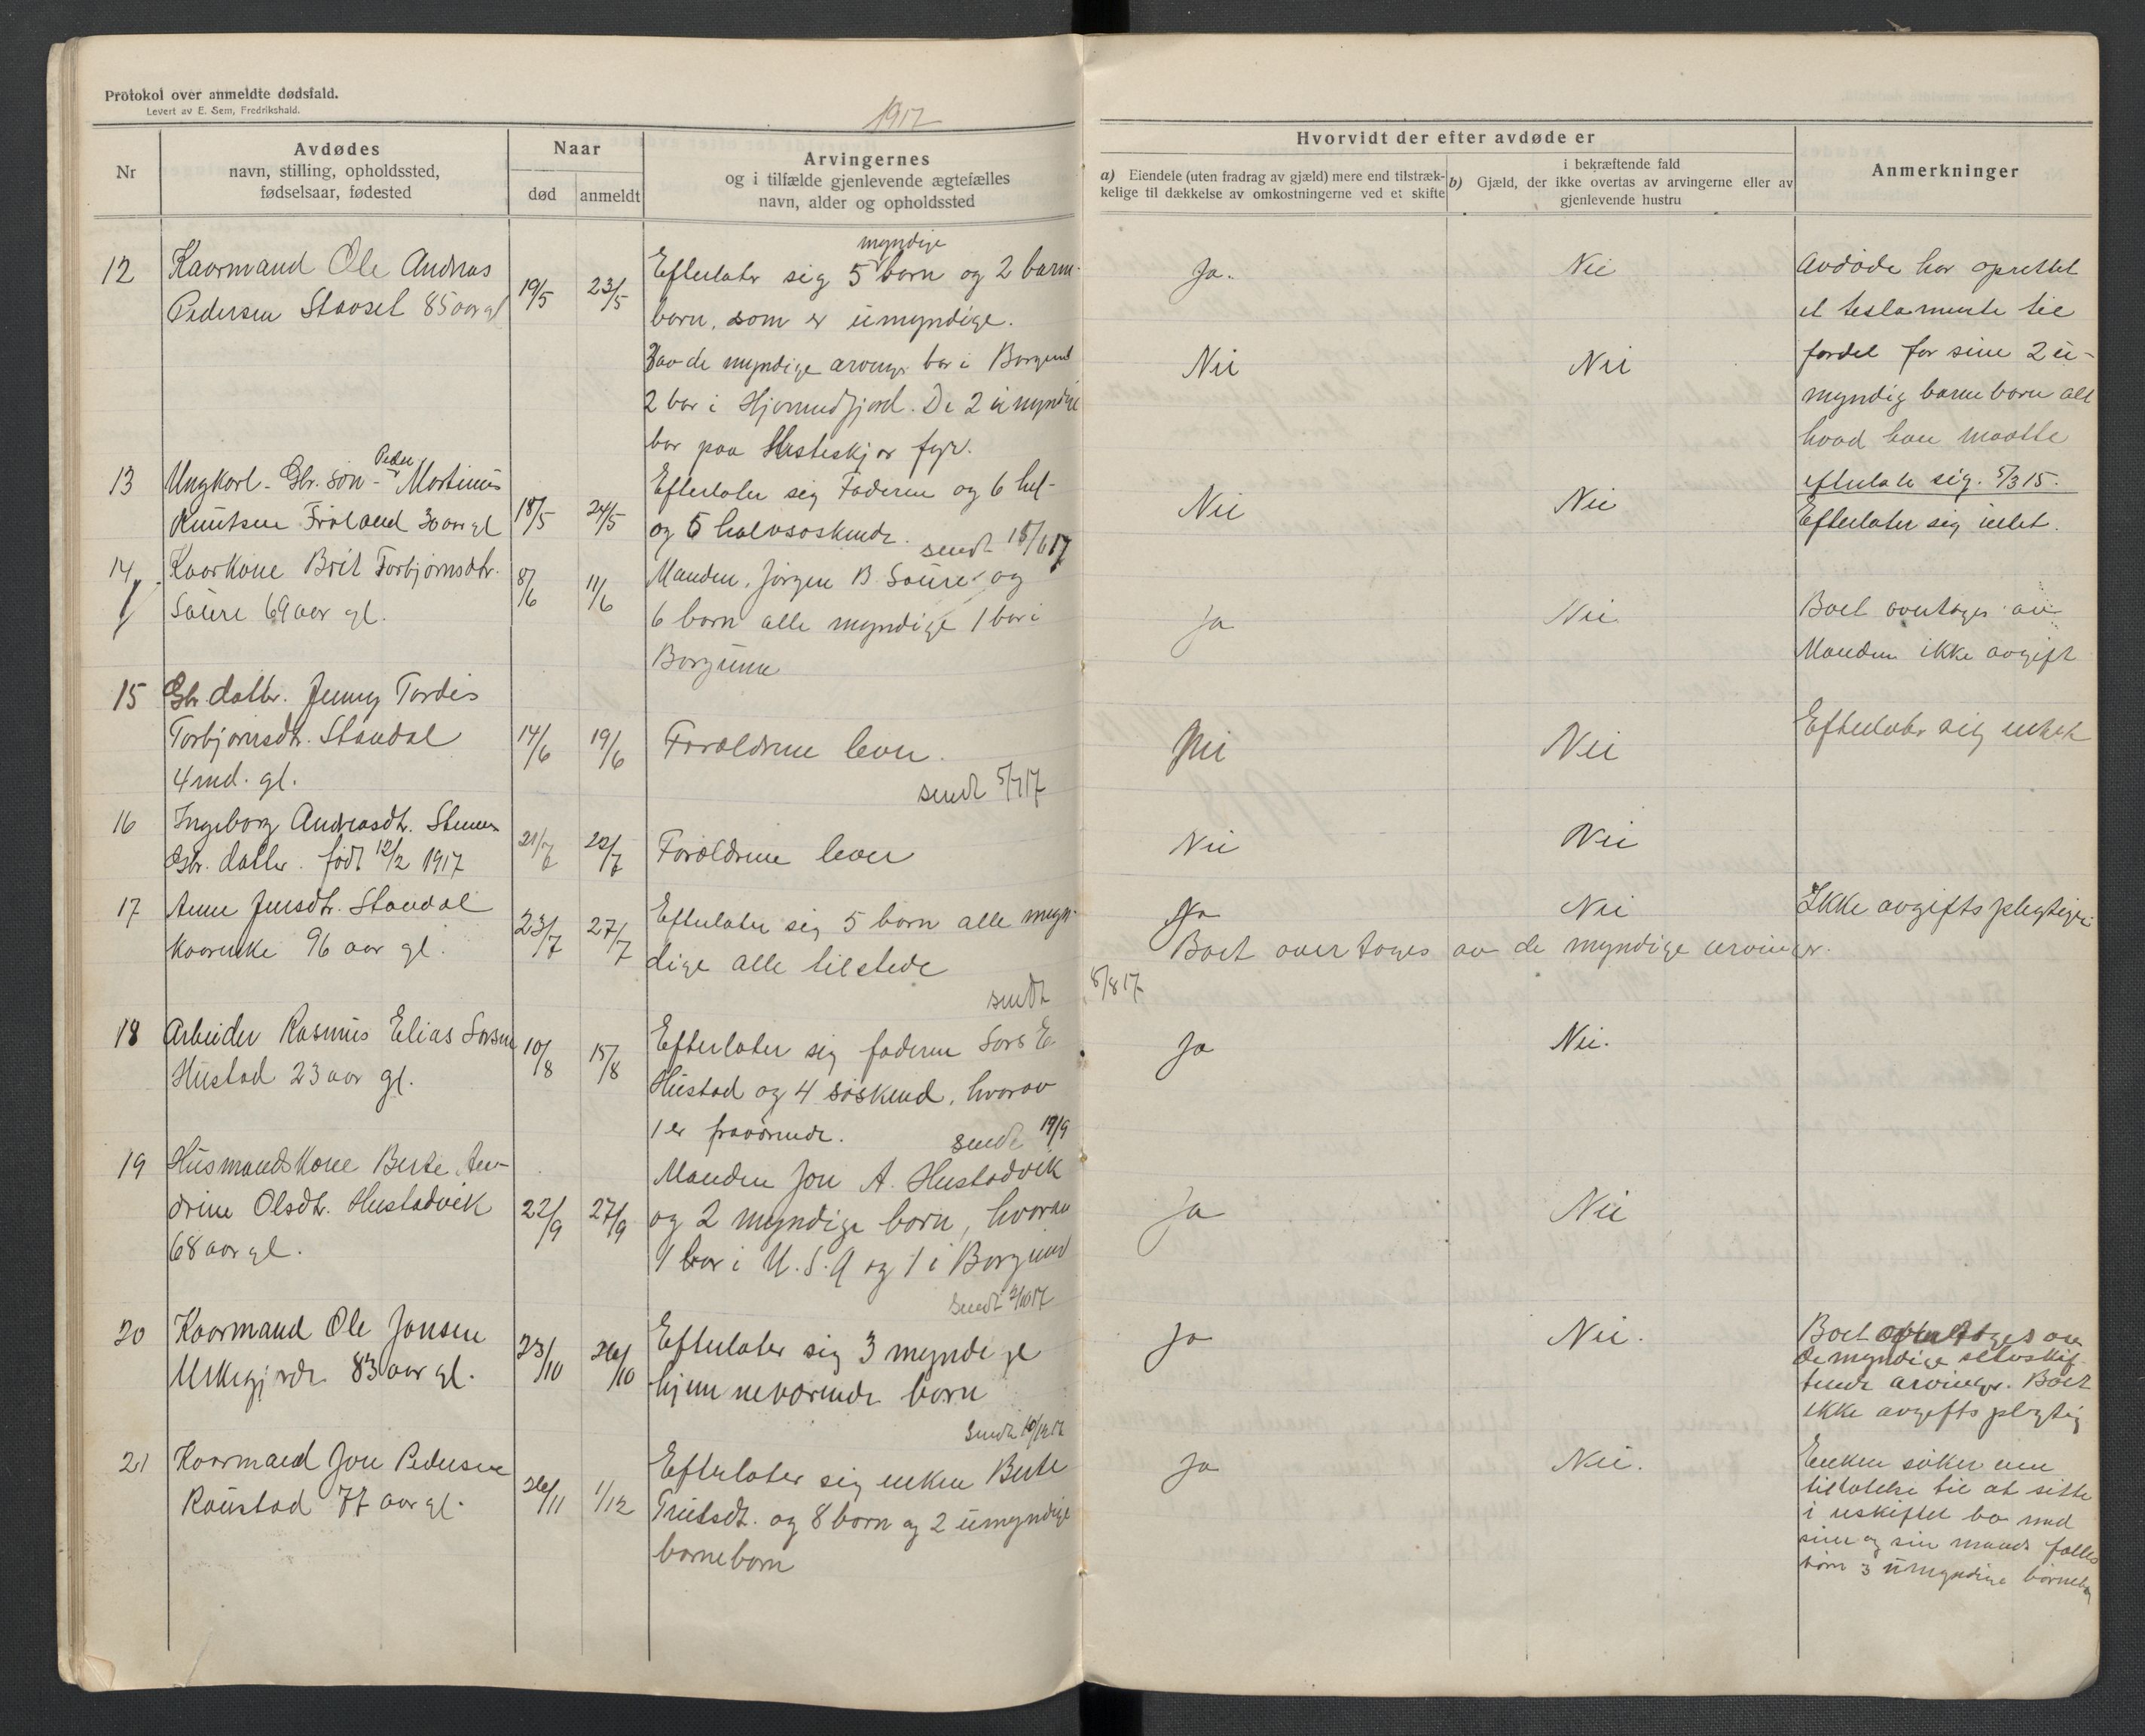 Protokol over anmeldte dødsfald.
Levert av E. Sem, Fredrikshald.
1917
Nr
Avdødes
navn, stilling, opholdssted,
fødselsaar, fødested
Naar
død
anmeldt
Arvingernes
og i tilfælde gjenlevende ægtefælles
navn, alder og opholdssted
Hvorvidt der efter avdøde er
a) Eiendele (uten fradrag av gjæld) mere end tilstræk-
kelige til dækkelse av omkostningerne ved et skifte
i bekræftende fald
b) Gjæld, der ikke overtas av arvingerne eller av
gjenlevende hustru
Anmerkninger
12
Kaarmand Ole Andreas
Pedersen Stavset 85 aar gl
19/5
23/5
myndige
Efterlater sig 5 børn og 2 barne-
børn, som er umyndige.
3 av de myndige arvinger bor i Borgund
2 bor i Hjørundfjord. De 2 umyndige
bor paa Hesteskjær fyr.
Ja.
Nei
Nei
Nei
Avdøde har oprettet
et testamente til
fordel for sine 2 u-
myndig barnebørn alt
hvad han maatte
efterlate sig. 5/3 15.
13
Peder
Ungkarl - Gbr. søn - Martinus
Knutsen Frøland 30 aar gl
18/5
24/5
Efterlater sig Faderen og 6 hel-
og 5 halvsøskende.
sendt 15/6 17
Nei
Nei
Efterlater sig intet.
14
Kaarkone Brit Torbjørnsdtr.
Saure 69 aar gl.
8/6
11/6
Manden, Jørgen B. Saure og
6 børn alle myndige 1 bor i
Borgund
Ja
Nei
Boet overtages av
Manden ikke avgift
15
Gbr. datter. Jenny Tordis
Torbjørnsdtr. Standal
4 md. gl.
14/6
19/6
Forældrene lever.
sendt 5/7 17
Nei
Nei
Efterlater sig intet
16
Ingeborg Andreasdtr. Stennes
Gbr. datter. født 12/2 1917
21/7
22/7
Forældrene lever
Nei
Nei
17
Anne Jensdtr. Standal
kaarenke 96 aar gl.
23/7
27/7
Efterlater sig 5 børn alle myn-
dige alle tilstede
sendt 8/8 17
Ja
Nei
Ikke avgiftspligtig
Boet overtages av de myndige arvinger.
18
Arbeider Rasmus Elias Larsen
Hustad 23 aar gl.
10/8
15/8
Efterlater sig faderen Lars E.
Hustad og 4 søskend, hvorav
1 er fraværende.
sendt 19/9
Ja
Nei.
19
Husmandskone Berte An-
drine Olsdtr. Hustadvik
68 aar gl.
22/9
27/9
Manden Jon A. Hustadvik
og 2 myndige børn, hvorav
1 bor i U.S.A og 1 i Borgund
sendt 2/10 17
Ja
Nei
20
Kaarmand Ole Jonsen
Urkegjerde 83 aar gl.
23/10
26/10
Efterlater sig 3 myndige
hjemmeværende børn
sendt 10/12 17
Ja
Nei.
Boet overtages av
de myndige selvskif-
tende arvinger. Boet
ikke avgiftspligtig
21
Kaarmand Jon Pedersen
Raustad 77 aar gl.
26/11
1/12
Efterlater sig enken Berte
og 8 børn og 2 umyndige
børnebørn
Ja
Nei.
Enken søker om
tillatelse til at sitte
i uskiftet bo med
sine og sin mands fælles
børn 3 umyndige børnebørn